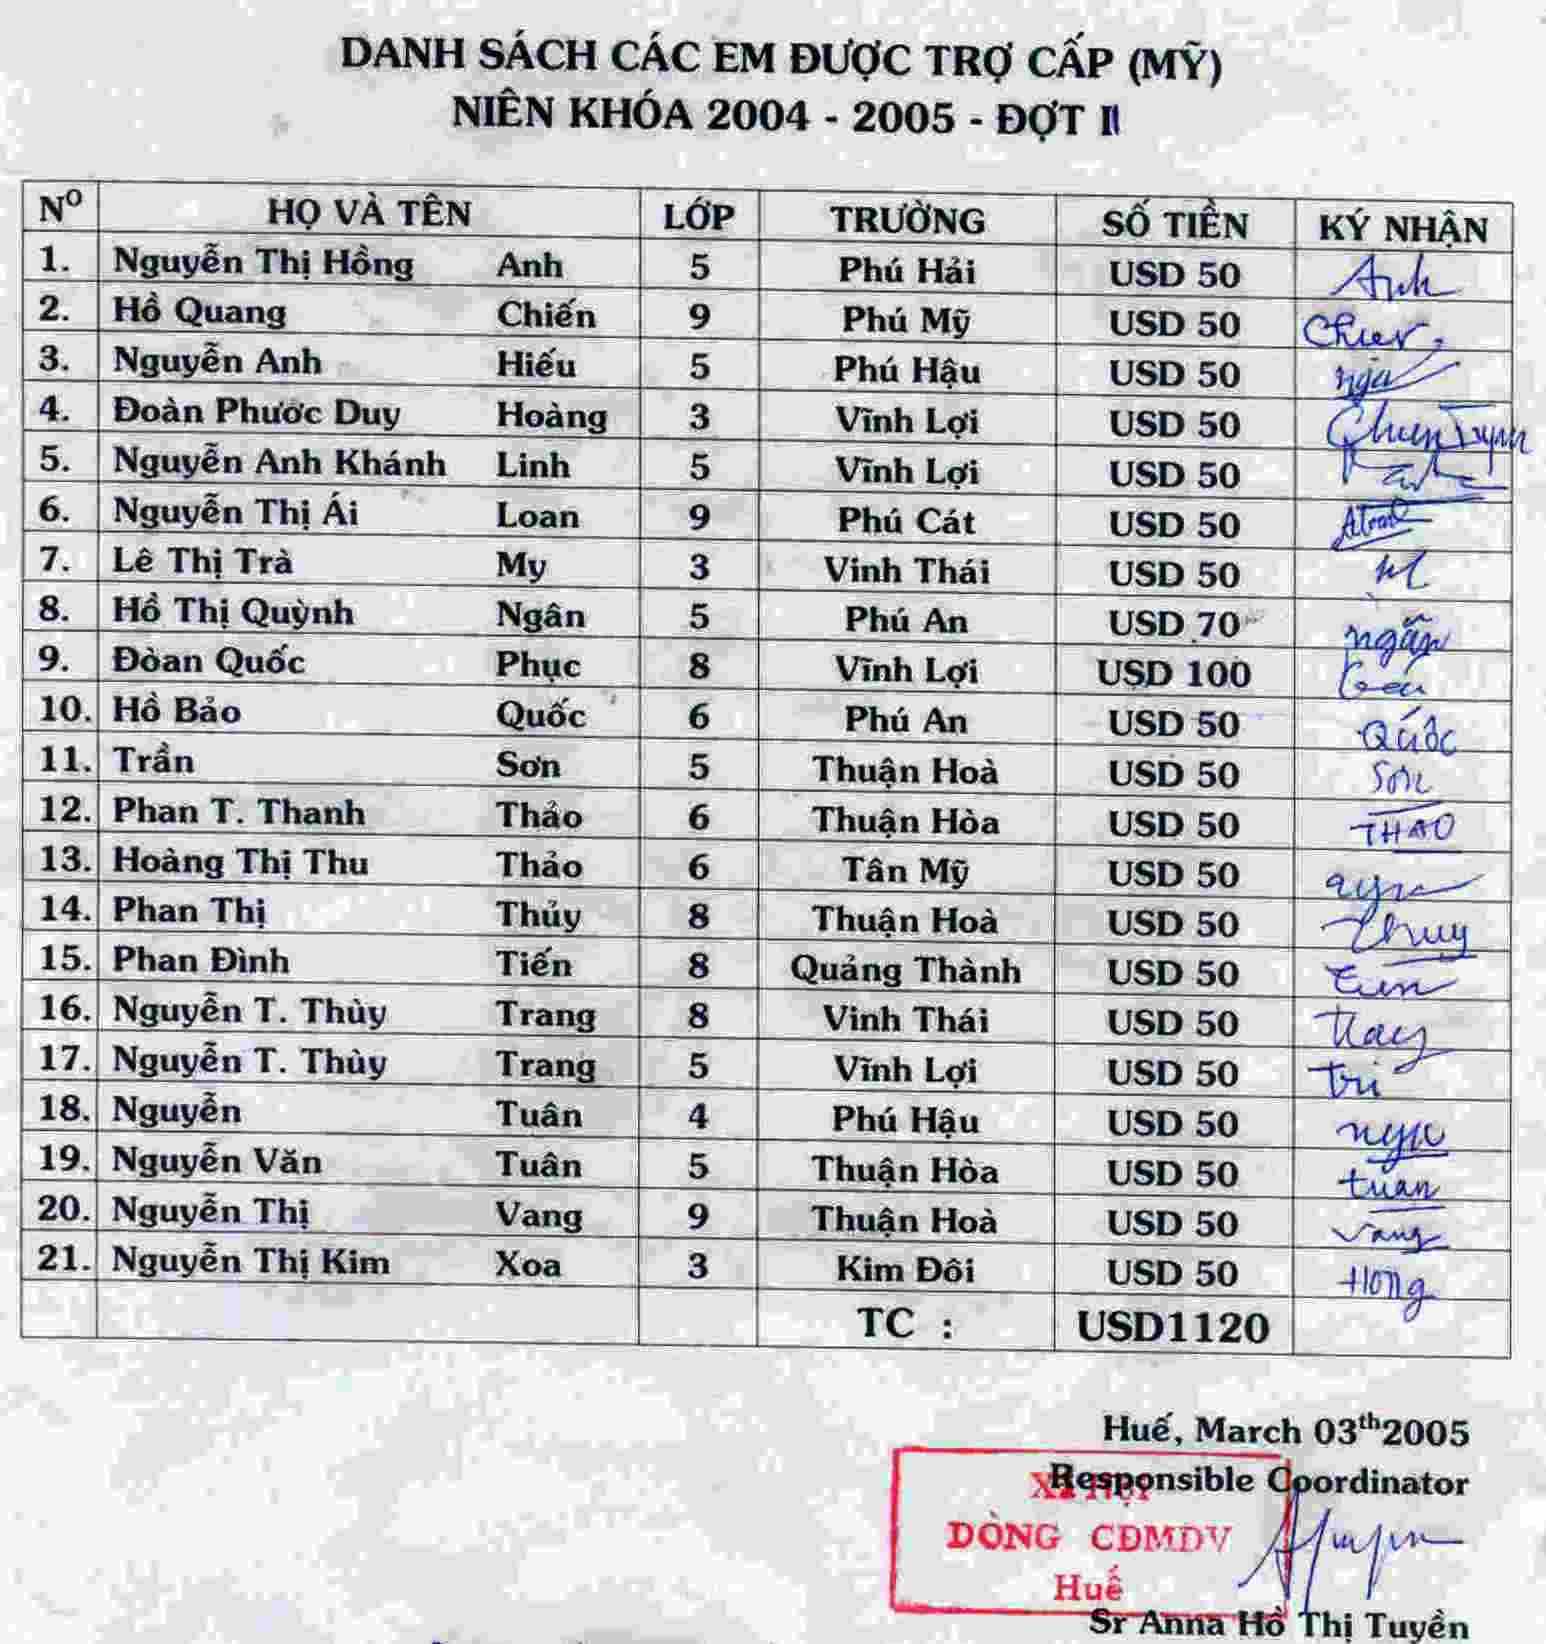 DANH SÁCH CÁC EM ĐƯỢC TRỢ CẤP (MỸ)
NIÊN KHÓA 2004 - 2005 - ĐỢT II
Nº HỌ VÀ TÊN LỚP TRƯỜNG SỐ TIỀN KÝ NHẬN
1. Nguyễn Thị Hồng Anh 5 Phú Hải USD 50 Anh
2. Hồ Quang Chiến 9 Phú Mỹ USD 50
3. Nguyễn Anh Hiếu 5 Phú Hậu USD 50 nga
4. Đoàn Phước Duy Hoàng 3 Vĩnh Lợi USD 50
5. Nguyễn Anh Khánh Linh 5 Vĩnh Lợi USD 50
6. Nguyễn Thị Ái Loan 9 Phú Cát USD 50
7. Lê Thị Trà My 3 Vinh Thái USD 50
8. Hồ Thị Quỳnh Ngân 5 Phú An USD 70 ngân
9. Đòan Quốc Phục 8 Vĩnh Lợi USD 100
10. Hồ Bảo Quốc 6 Phú An USD 50 Quốc
11. Trần Sơn 5 Thuận Hoà USD 50 Sơn
12. Phan T. Thanh Thảo 6 Thuận Hòa USD 50 THAO
13. Hoàng Thị Thu Thảo 6 Tân Mỹ USD 50
14. Phan Thị Thủy 8 Thuận Hoà USD 50 Thuy
15. Phan Đình Tiến 8 Quảng Thành USD 50
16. Nguyễn T. Thùy Trang 8 Vinh Thái USD 50
17. Nguyễn T. Thùy Trang 5 Vĩnh Lợi USD 50 tri
18. Nguyễn Tuân 4 Phú Hậu USD 50
19. Nguyễn Văn Tuân 5 Thuận Hòa USD 50 tuan
20. Nguyễn Thị Vang 9 Thuận Hoà USD 50 vang
21. Nguyễn Thị Kim Xoa 3 Kim Đôi USD 50 Hong
TC : USD1120
Huế, March 03th2005
Responsible Coordinator
XÃ HỘI
DÒNG CĐMDV
Huế
Sr Anna Hồ Thị Tuyền